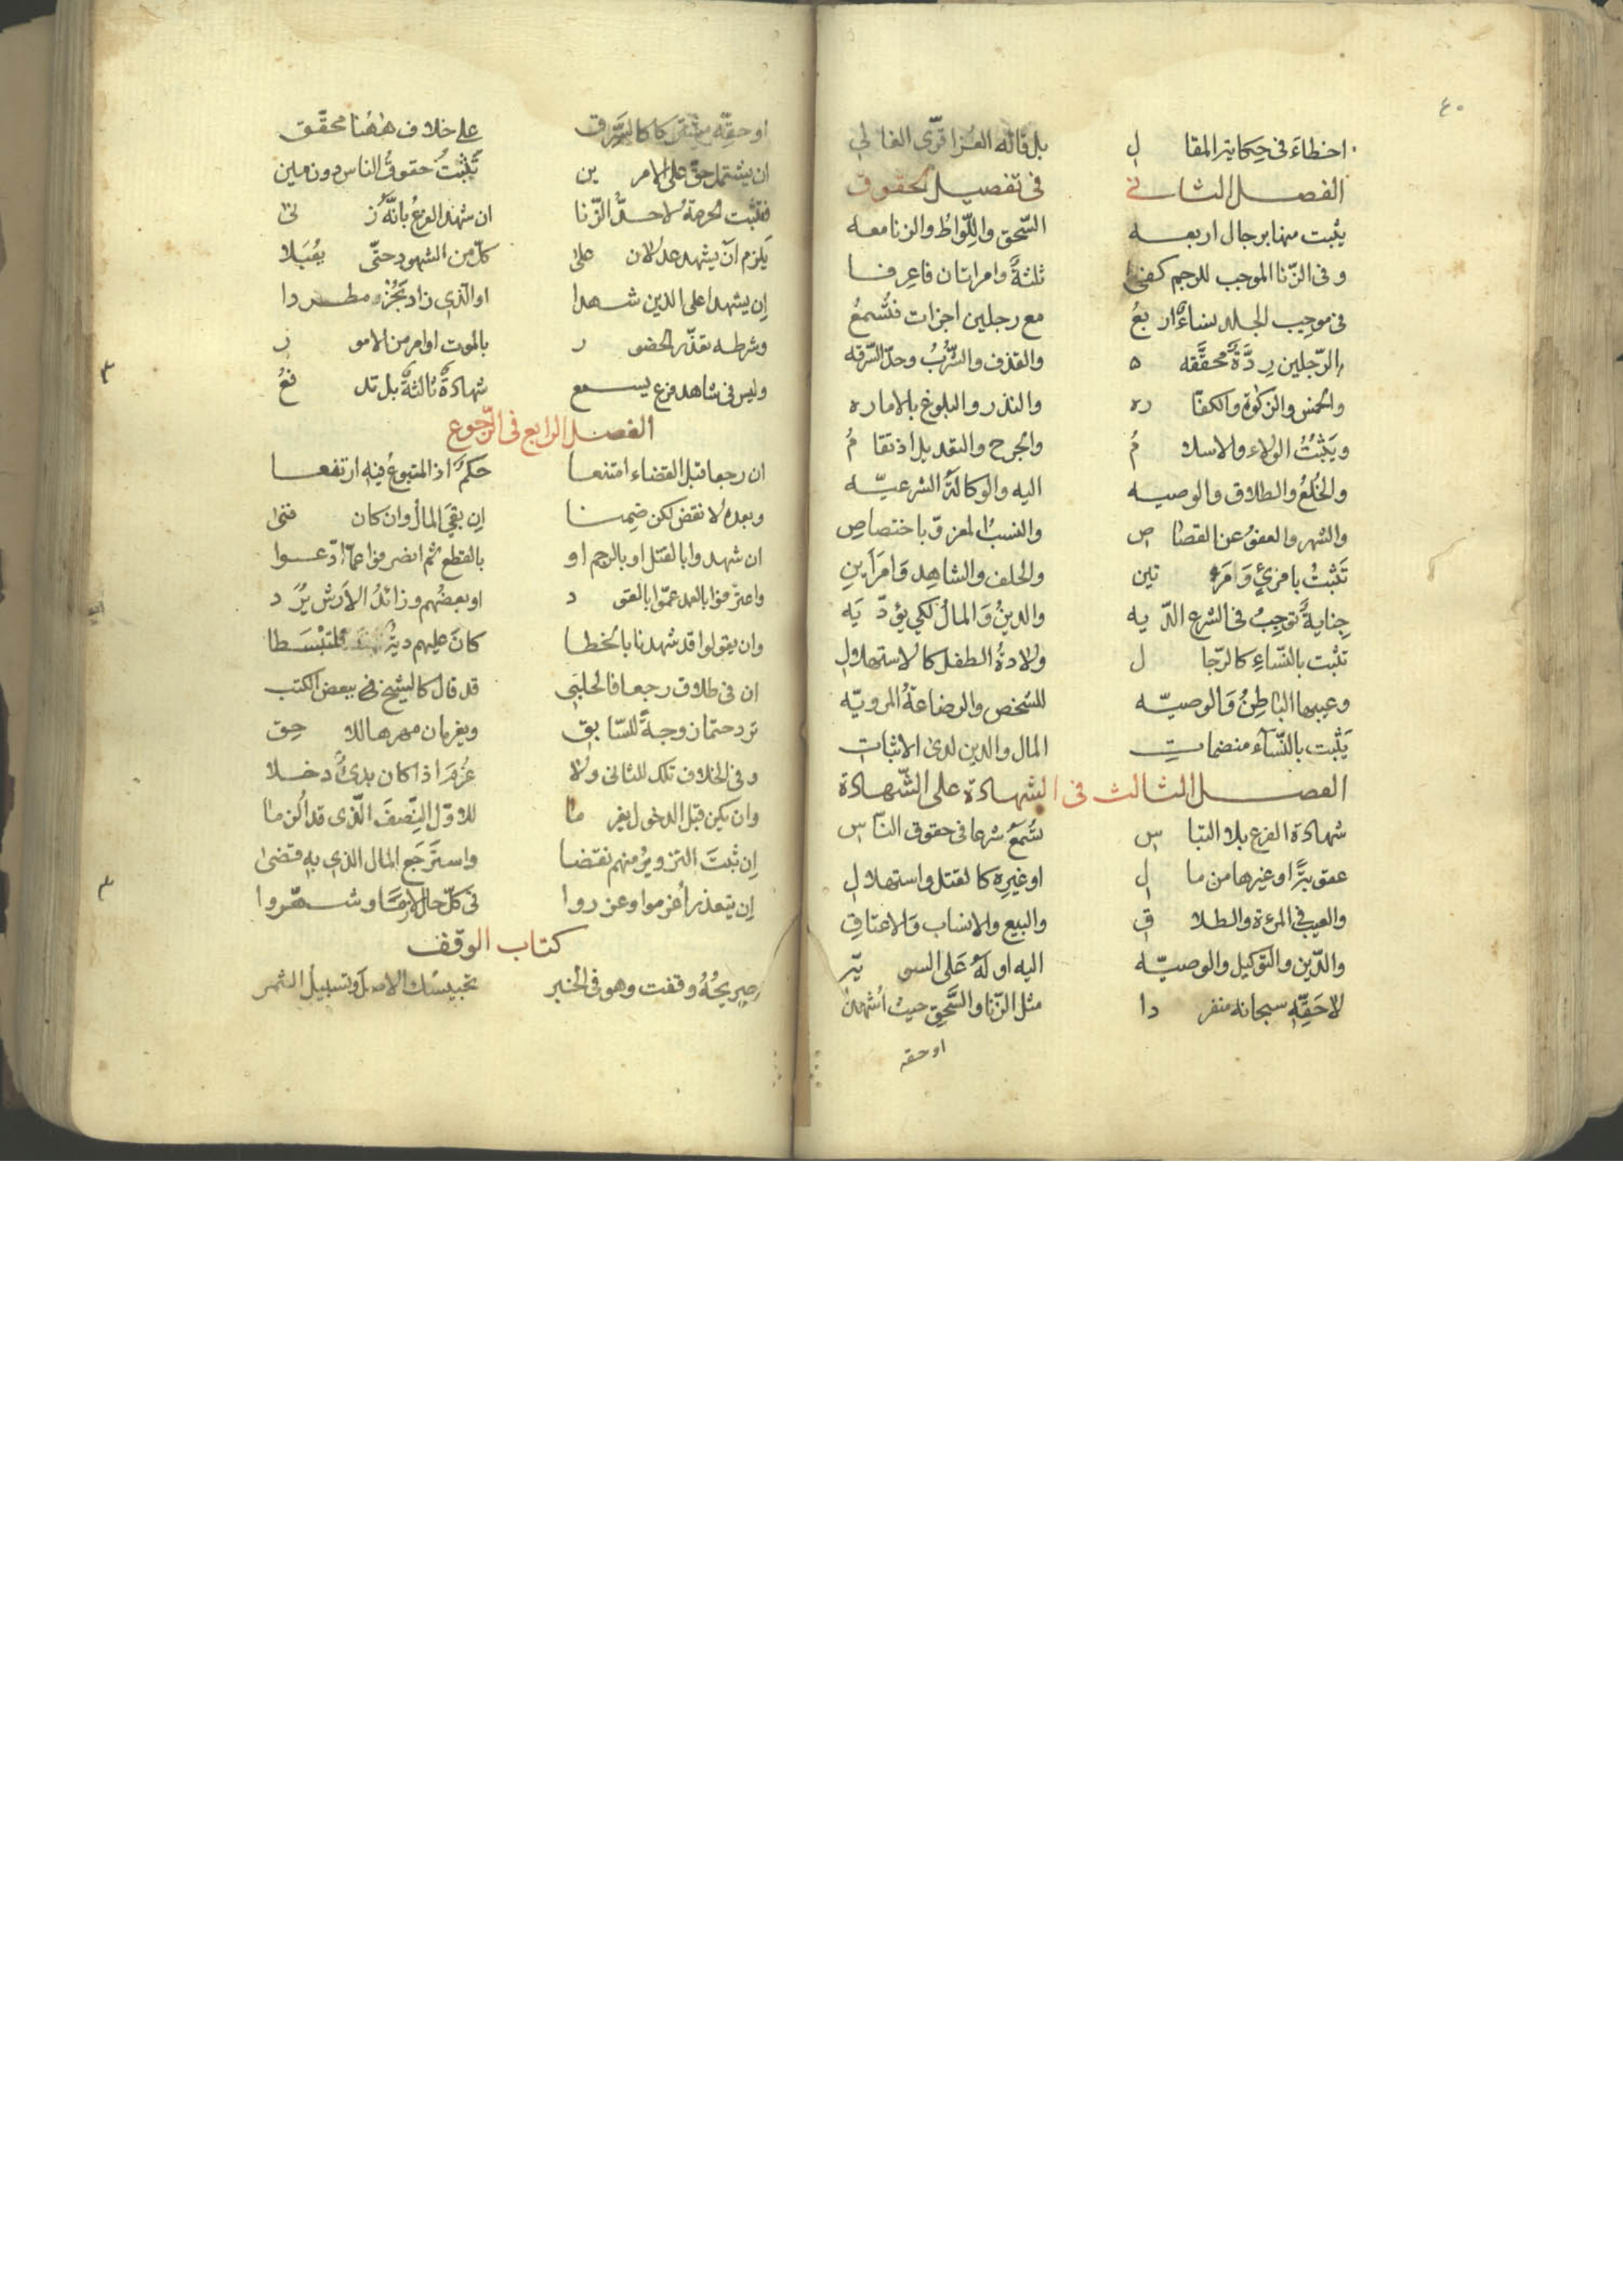 ٤٠
اخطاء فى حكايتر المقال بل قاله الغزا قوّى الغالي
الفصل الثانى فى تفصيل الحقوق
يثبت منها برجال اربعه السّحق واللّواط والزنا معه
وفى الزّنا الموجب للرجم كفى ثلثةً وامراتان فاعرفا
فى موجب الجلد نساءٌ اربعُ مع رجلين اجزات فتُسمعُ
بالرّجلين رِدَّةٌ محقَّقه والقذف والشّربُ وحدّ السّرقه
والخمس والزكوة والكفّاره والنذر والبلوغ بالاماره
ويَثبُتُ الولاء والاسلامُ والجرح والتعديل اذ تقامُ
والخُلعُ والطلاق والوصيه اليه والوكالةُ الشرعيّه
والشهر والعفوُ عن القصاص والنسبُ المعزوّ باختصاصِ
تَثبتُ بامرئٍ وَامرَءتين والحلف والشاهِد وَامرَأينِ
جِنايةٌ توجِبُ فى الشرع الدّيه والدينُ وَالمالُ لكي يؤدّيَه
تثبت بالنّساءِ كالرّجال ولادةُ الطفل كالاستهلالِ
وعيبها الباطِنُ وَالوصيّه للشخص والرضاعةُ المرويّه
يَثبت بالنّسآء منضماتِ المال والدين لدى الاثباتِ
الفصل الثالث فى الشهادة على الشّهادة
شهادة الفرع بلا التباس تُسمَعُ شرعا فى حقوق النّاسِ
عقوبةً او غيرها من مال او غيرِه كالقتل واستهلالِ
والعيب في المرءة والطلاق والبيع والانساب وَالاعتاقِ
والدّين والتوكيل والوصيّه اليه او لَهُ عَلى السويّه
لا حَقِّهِ سبحانه منفردا مثل الزّنا والسَّحقِ حيثُ اُشهدا
او حقه
او حقِّه مشتركا كالسَّرّاق على خلاف هٰهُنا محقّق
ان يشتمل حقّ على الامرين تَثبُتُ حقوقُ الناس دون مين
فتثبت الحرمةُ لا حدُّ الزّنا ان شهد الفرعُ بانّه زنى
يَلزم اَن يشهد عدلان على كلّ من الشهود حتّى يقُبَلا
اِن يشهدا على الذين شهدا او الّذى زاد يَجُزْه مطردا
وشرطه تعذّر الحضور بالموت او امر من الامور
وليس فى شاهد فرع يسمع شهادةٌ ثالثةٌ بل تدفعُ
الفصل الرابع فى الرّجوع
ان رجعا قبل القضاء امتنعا حكمٌ اذ المتبوعُ فيه ارتفعا
وبعده لا نقض لكن ضمنا اِن بقيَ المالُ وان كان فنى
ان شهدوا بالقتل او بالرجم او بالقطع ثم انصرفوا عمّا ادّعوا
واعترفوا بالعمد عمّوا بالقود او بعضُهم وزائدُ الاَرش يُرَد
وان يقولوا قد شهدنا بالخطا كان عليهم ديةٌ لتبْسَطا
ان فى طلاق رجعا فالحلبي قد قال كالشيخ في ببعض الكتب
تردّ حتمان وجةً للسّابق ويغرمان مهرها للاحق
وفى الخلاف تلك للثانى ولا غُرمَ اذا كان بدئُ دخلا
وان يكن قبل الدخول يغرما للاوّل النِّصفَ الّذى قد اُلزما
اِن ثبتَ التزويرُ منهم نقضا واستَرجَع المال الذى به قضىٰ
اِن يتعذر اُغرموا وعزروا فى كلّ حال وشهّروا
كتاب الوقف
صريحُهُ وقفت وهو فى الخبر تحبيسُك الاصلَ وتسبيلُ الثمر